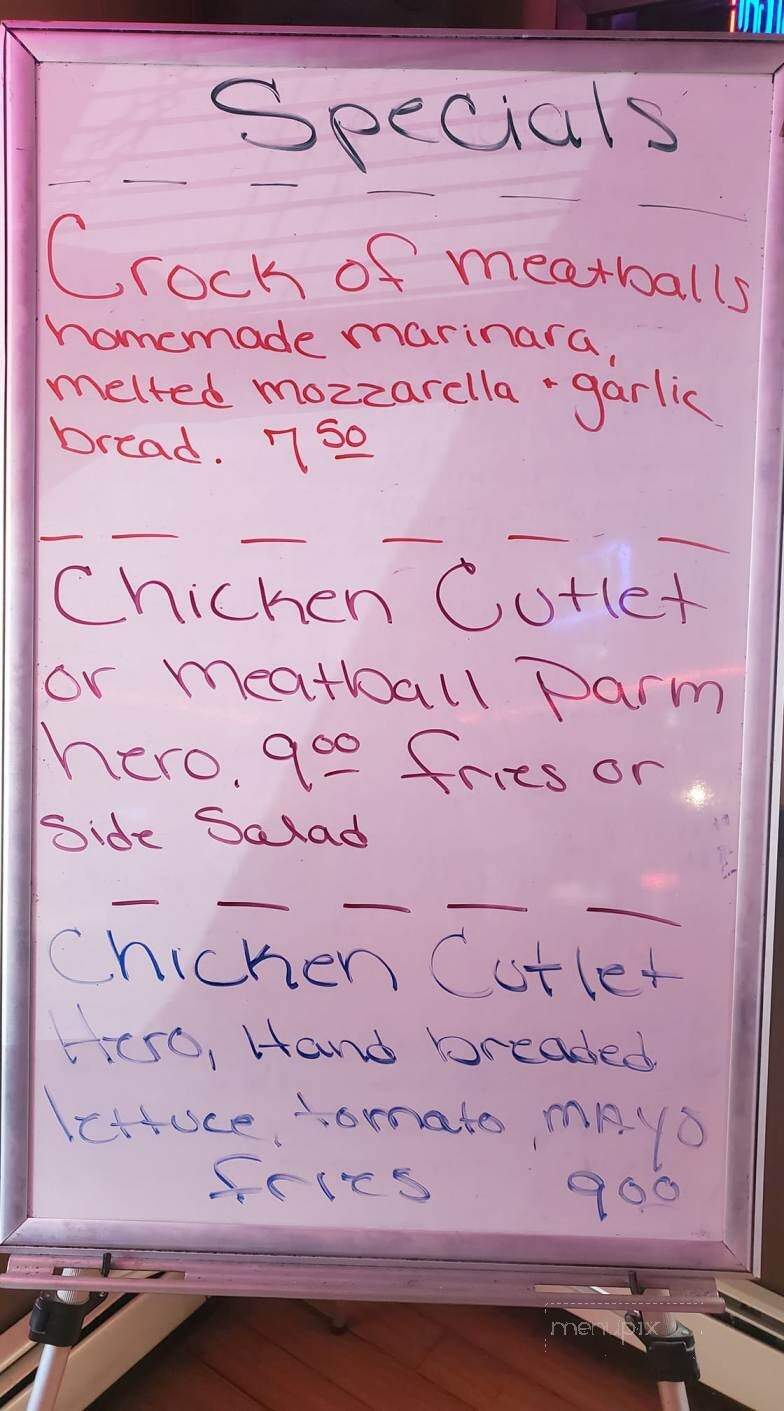 Specials
Crock of meatballs
homemade marinara,
melted mozzarella + garlic
bread. 7 50
Chicken Cutlet
or meatball Parm
hero. 9 00 fries or
Side Salad
Chicken Cutlet
Hero, Hand breaded
lettuce, tomato, MAYO
fries 9 00
menupix